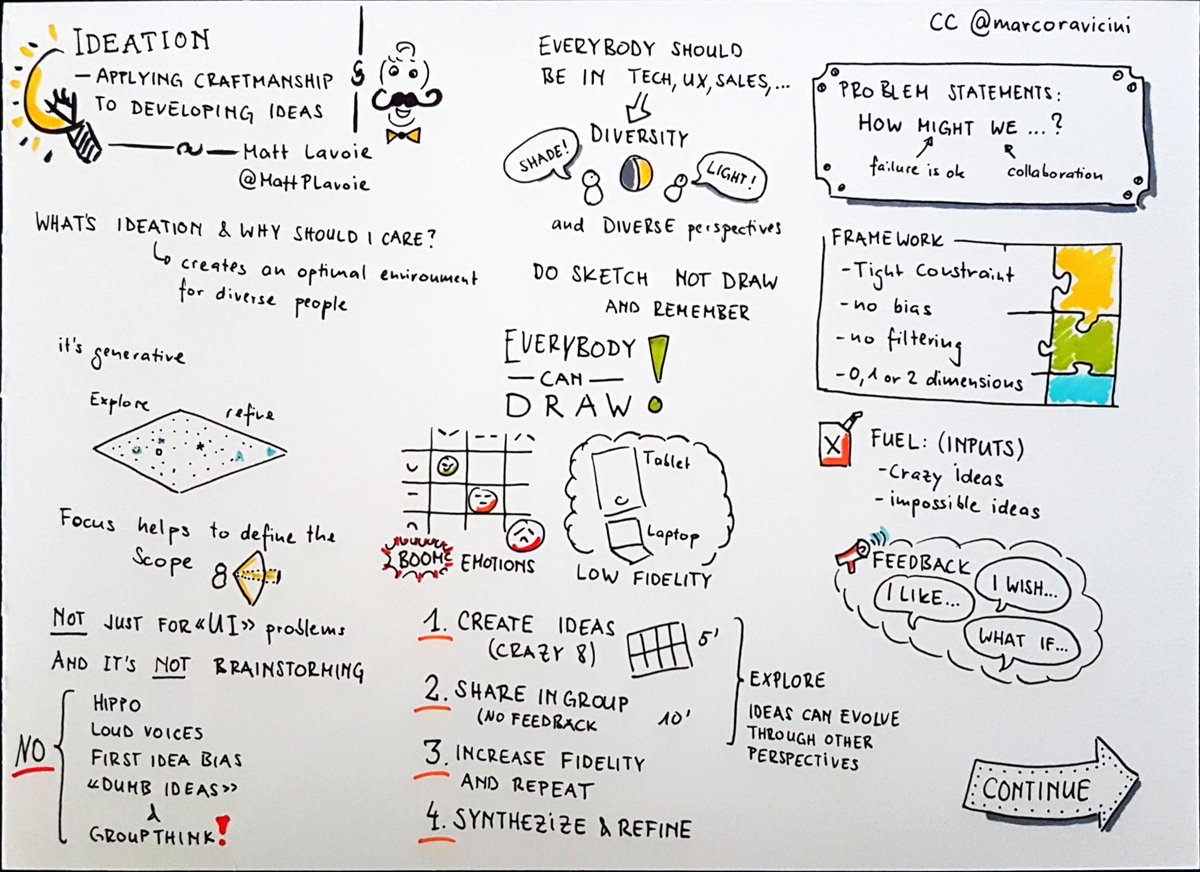 IDEATION
— APPLYING CRAFTMANSHIP
TO DEVELOPING IDEAS
Matt Lavoie
@MattPLavoie
WHAT'S IDEATION & WHY SHOULD I CARE?
creates an optimal environment
for diverse people
it's generative
Explore
refine
Focus helps to define the
Scope
NOT JUST FOR «UI» problems
AND IT'S NOT BRAINSTORMING
NO
HIPPO
LOUD VOICES
FIRST IDEA BIAS
«DUMB IDEAS»
&
GROUPTHINK!
EVERYBODY SHOULD
BE IN TECH, UX, SALES,...
DIVERSITY
SHADE!
LIGHT!
and DIVERSE perspectives
DO SKETCH NOT DRAW
AND REMEMBER
EVERYBODY
— CAN —
DRAW!
BOOM!
EMOTIONS
Tablet
Laptop
LOW FIDELITY
1. CREATE IDEAS
(CRAZY 8)
5'
2. SHARE IN GROUP
(NO FEEDBACK
10'
3. INCREASE FIDELITY
AND REPEAT
4. SYNTHEZIZE & REFINE
EXPLORE
IDEAS CAN EVOLVE
THROUGH OTHER
PERSPECTIVES
CC @marcoravicini
PROBLEM STATEMENTS:
HOW MIGHT WE ...?
failure is ok
collaboration
FRAMEWORK
- Tight Constraint
- no bias
- no filtering
- 0, 1 or 2 dimensions
X
FUEL: (INPUTS)
- Crazy ideas
- impossible ideas
FEEDBACK
I LIKE...
I WISH...
WHAT IF...
CONTINUE